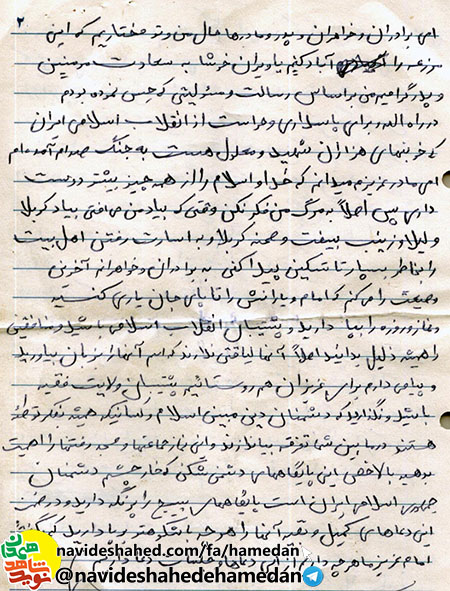 ۲
ای برادران و خواهران و پدر و مادرها حال من و تو مختاریم که این
مزرعه را آباد کنیم یا ویران خوشا به سعادت مومنین
و پدر گرامیم من بر اساس رسالت و مسئولیتی که حس نموده بودم
در راه الله و برای پاسداری و حراست از انقلاب اسلامی ایران
که خونبهای هزاران شهید و معلول هست به جنگ صدام آمده‌ام
ای مادر عزیزم میدانم که خدا و اسلام را از همه چیز بیشتر دوست
داری پس اصلاً به مرگ من فکر نکن وقتی که بیاد من می‌افتی بیاد کربلا
و لیلا و زینب بیفت و صحنه کربلا و به اسارت رفتن اهل بیت
را بخاطر بسپار تا تسکین پیدا کنی به برادران و خواهرانم آخرین
وصیت را می‌کنم که امام و یارانش را تا پای جان یاری کنید
و نماز و روزه را بپا دارید و پشتیبان انقلاب اسلامی باشید و منافقین
را همیشه ذلیل بدانید اصلاً آنها لیاقتی ندارند که اسم آنها را بزبان بیاورید
و پیامی دارم برای عزیزان هم روستائیم پشتیبان ولایت فقیه
باشید و نگذارید که دشمنان دین مبین اسلام و کسانیکه همیشه بفکر توطئه
هستند در ما بین شما تفرقه بیاندازند و این نماز جماعتها و مسجد رفتنها را اهمیت
بدهید بالاخص این پایگاههای دشمن شکن که خار چشم دشمنان
جمهوری اسلامی ایران است پایگاههای بسیج را پر نگه دارید و در ضمن
این دعاهای کمیل و ندبه آنها را هر چه باشکوهتر بر پا دارید که بگفته
امام عزیز ما هر چه داریم از این دعاها و
navideshahed.com/fa/hamedan
@navideshahedehamedan
نوید شاهد
همدان